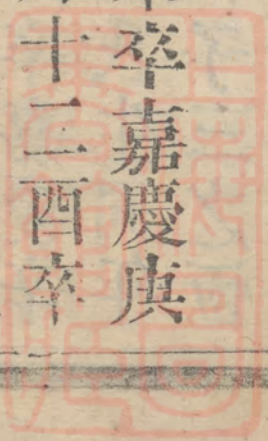 卒嘉慶庚
十二酉卒